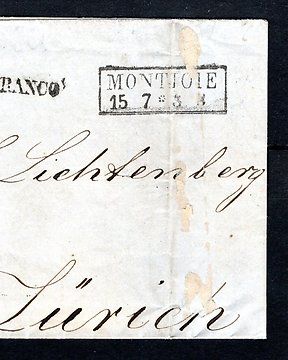 FRANCO
MONTJOIE
15 7 * 3
Lichtenberg
Zürich